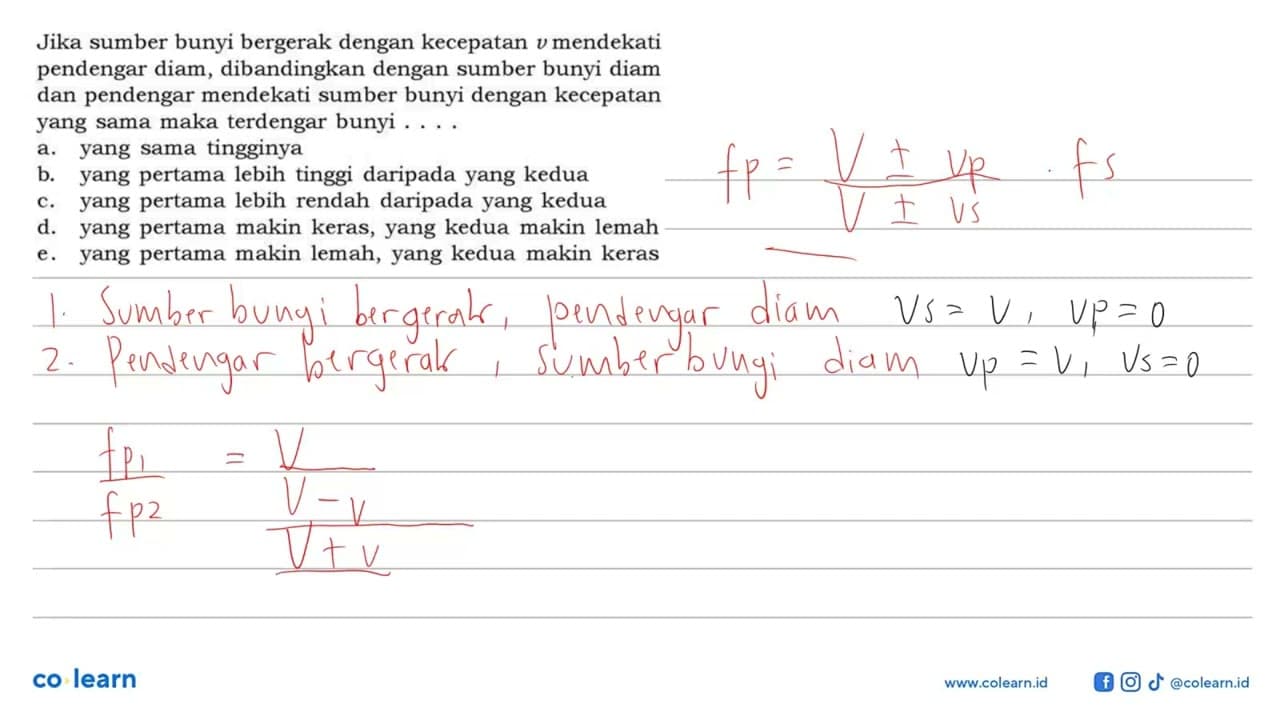 Jika sumber bunyi bergerak dengan kecepatan v mendekati
pendengar diam, dibandingkan dengan sumber bunyi diam
dan pendengar mendekati sumber bunyi dengan kecepatan
yang sama maka terdengar bunyi . . . .
a. yang sama tingginya
b. yang pertama lebih tinggi daripada yang kedua
c. yang pertama lebih rendah daripada yang kedua
d. yang pertama makin keras, yang kedua makin lemah
e. yang pertama makin lemah, yang kedua makin keras
fp = V ± vp . fs
V ± vs
1. Sumber bunyi bergerak, pendengar diam vs = v, vp = 0
2. Pendengar bergerak, sumber bunyi diam vp = v, vs = 0
fp1 = V
fp2 V - v
V + v
co learn
www.colearn.id @colearn.id